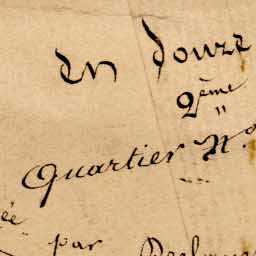 en douze
2ème "
Quartier N.°
ée
par